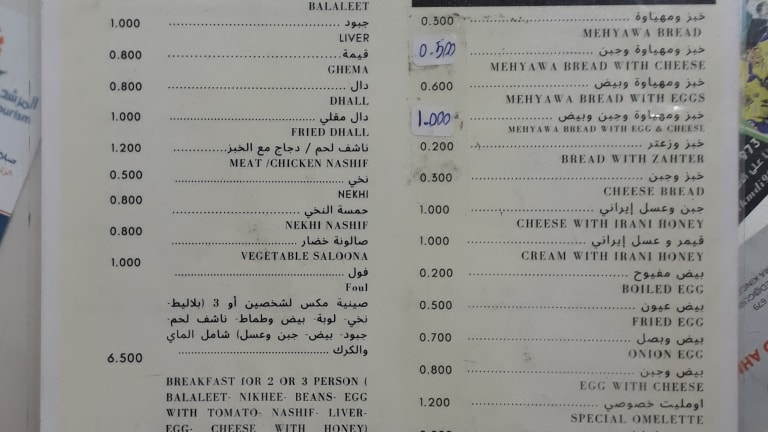 BALALEET
1.000 جبود
LIVER
0.800 قيمة
GHEMA
0.800 دال
DHALL
1.000 دال مقلي
FRIED DHALL
1.200 ناشف لحم / دجاج مع الخبز
MEAT /CHICKEN NASHIF
0.500 نخي
NEKHI
0.800 حمسة النخي
NEKHI NASHIF
0.800 صالونة خضار
VEGETABLE SALOONA
1.000 فول
Foul
صينية مكس لشخصين أو 3 (بلاليط-
نخي- لوبة- بيض وطماط- ناشف لحم-
جبود- بيض- جبن وعسل) شامل الماي
6.500 والكرك
BREAKFAST FOR 2 OR 3 PERSON (
BALALEET- NIKHEE- BEANS- EGG
WITH TOMATO- NASHIF- LIVER-
EGG- CHEESE WITH HONEY)
0.300 خبز ومهياوة
MEHYAWA BREAD
0.500 خبز ومهياوة وجبن
MEHYAWA BREAD WITH CHEESE
0.600 خبز ومهياوة وبيض
MEHYAWA BREAD WITH EGGS
1.000 خبز ومهياوة وجبن وبيض
MEHYAWA BREAD WITH EGG & CHEESE
0.200 خبز وزعتر
BREAD WITH ZAHTER
0.300 خبز وجبن
CHEESE BREAD
1.000 جبن وعسل إيراني
CHEESE WITH IRANI HONEY
1.000 قيمر و عسل إيراني
CREAM WITH IRANI HONEY
0.200 بيض مفيوح
BOILED EGG
0.500 بيض عيون
FRIED EGG
0.700 بيض وبصل
ONION EGG
0.800 بيض وجبن
EGG WITH CHEESE
1.200 اومليت خصوصي
SPECIAL OMELETTE
المرشد